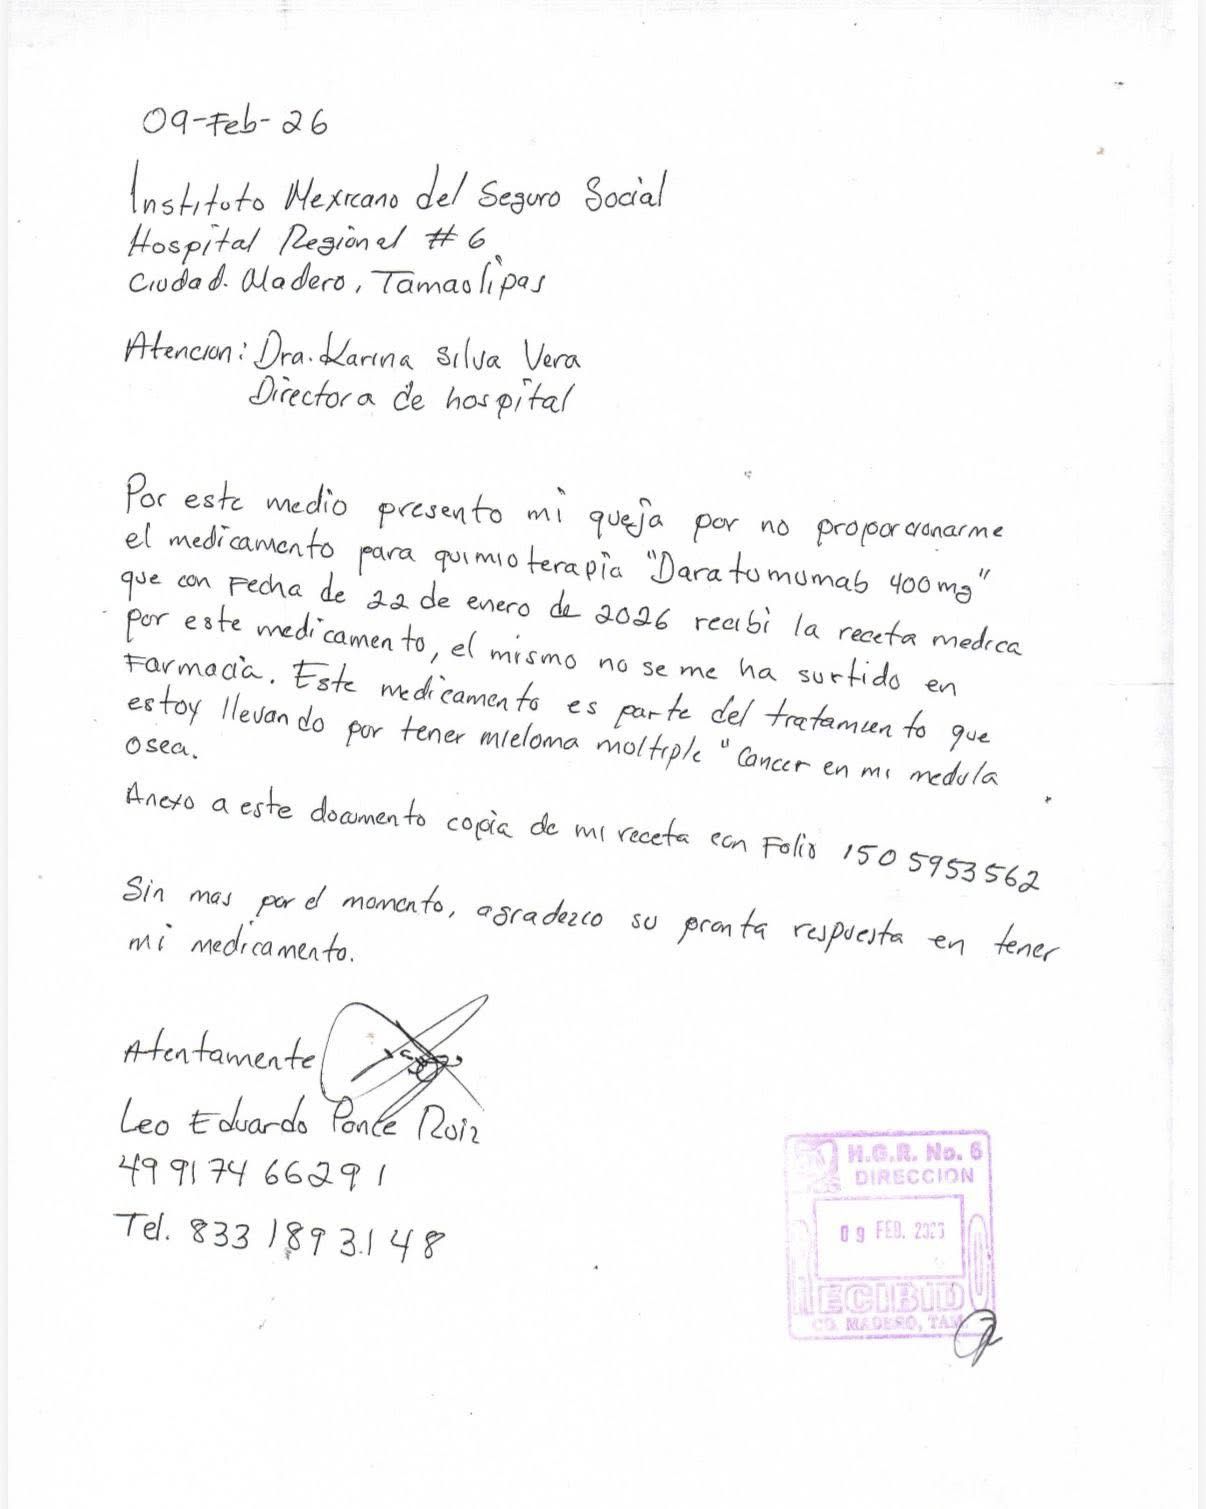 09-Feb-26
Instituto Mexicano del Seguro Social
Hospital Regional # 6
Ciudad. Madero, Tamaulipas
Atencion: Dra. Karina Silva Vera
Directora de hospital
Por este medio presento mi queja por no proporcionarme
el medicamento para quimioterapia "Daratumumab 400mg"
que con Fecha de 22 de enero de 2026 recibi la receta medica
por este medicamento, el mismo no se me ha surtido en
Farmacia. Este medicamento es parte del tratamiento que
estoy llevando por tener mieloma moltiple "Cancer en mi medula
osea.
Anexo a este documento copia de mi receta con Folio 1505953562
Sin mas por el momento, agradezco su pronta respuesta en tener
mi medicamento.
Atentamente
Leo Eduardo Ponce Ruiz
49 91 74 66291
Tel. 833 189 3148
H.G.R. No. 6
DIRECCION
09 FEB.
RECIBID
CD. MADERO, TAM.